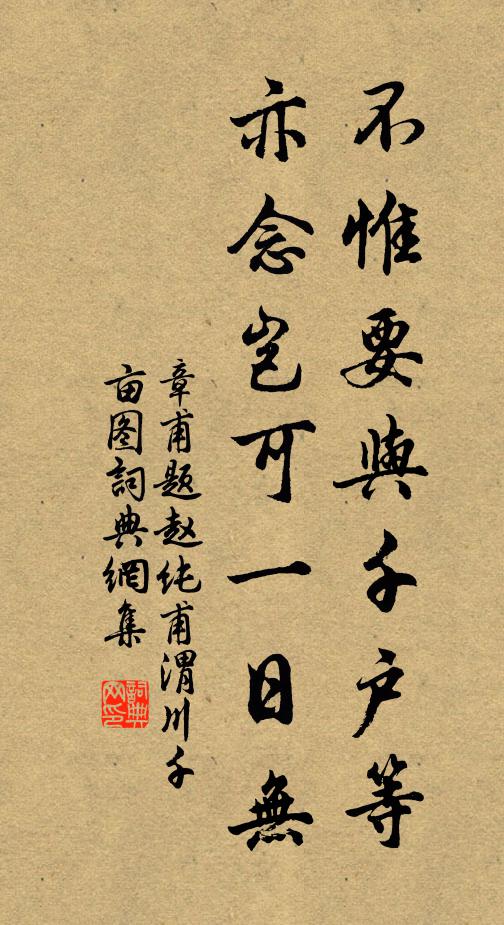 不惟要與千户等
亦念岂可一日無
章甫题赵纯甫渭川千
亩图詞典網集
詞典网印